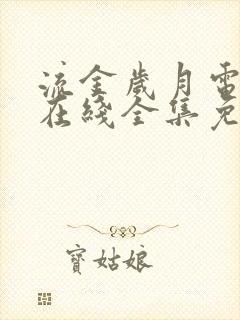 流金歲月電
在綫全集免
寶姑娘